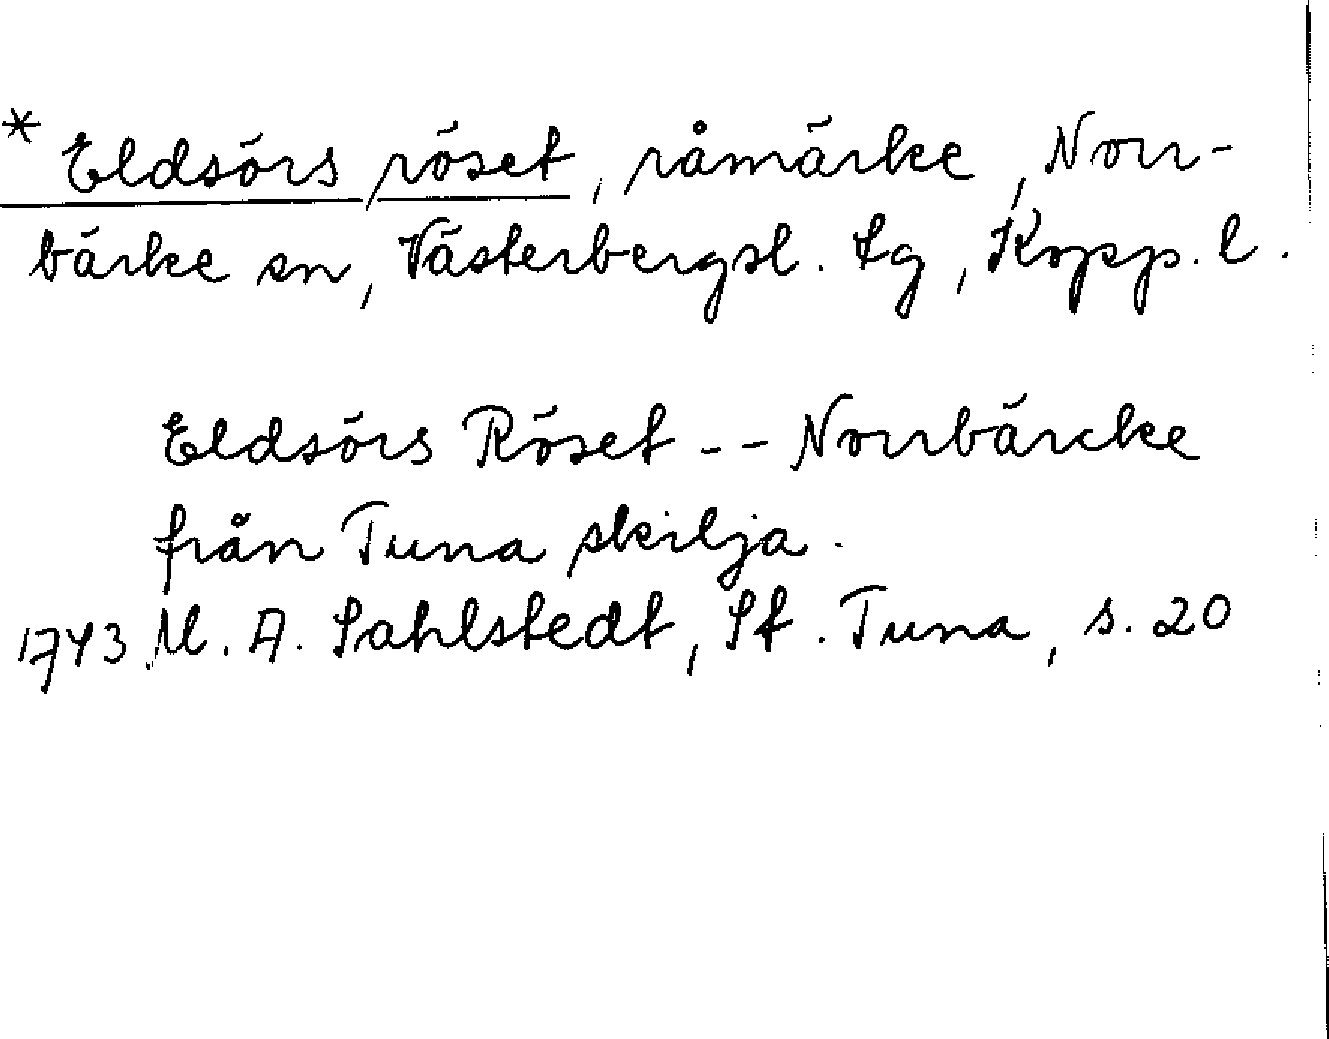 * Eldsörs röset, råmärke, Norr-
bärke sn, Västerbergsl. tg, Kopp. l.
Eldsörs Röset -- Norrbärcke
från Tuna skilja.
1743 M. A. Sahlstedt, St. Tuna, s. 20